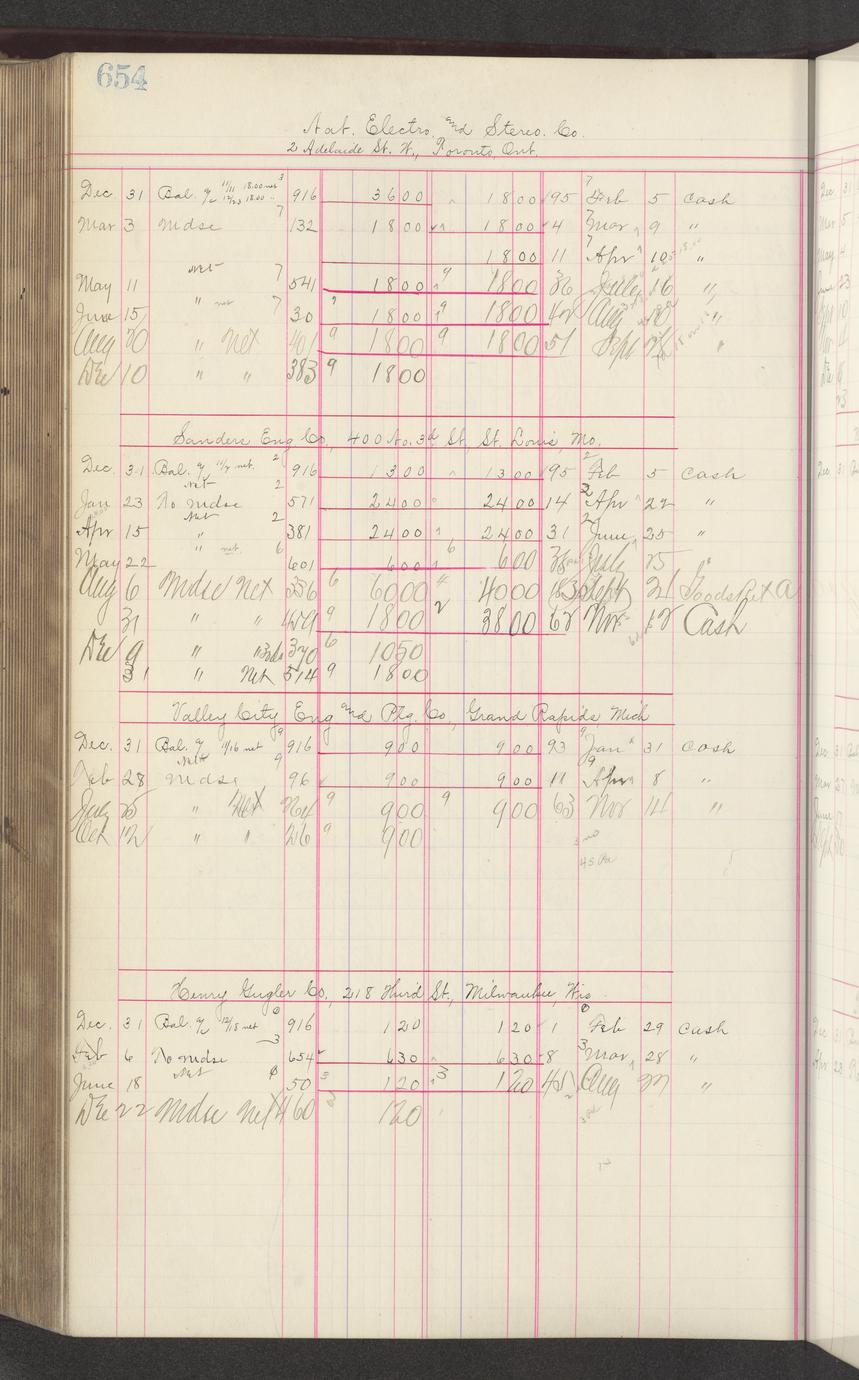 654
Nat. Electro. and Stereo. Co.
2 Adelaide St. W., Toronto, Ont.
Dec. 31 Bal. 916 3600 1800 95 Feb 5 Cash
Mar 3 Mdse 7 132 1800 1800 4 Mar 9 "
1800 11 Apr 10 "
May 11 Net 7 541 1800 9 1800 36 July 16 "
June 15 " net 7 30 1800 9 1800 Aug "
Aug 30 " Net 401 9 1800 9 1800 51 Sept "
Dec 10 " " 383 9 1800
Sanders Eng Co., 400 No. 3d St., St. Louis, Mo.
Dec. 31 Bal. 11/7 net. 2 916 1300 1300 95 Feb 5 Cash
Jan 23 To Mdse Net 2 571 2400 2400 14 Apr 22 "
Apr 15 " Net 2 381 2400 2400 31 June 25 "
May 22 " net 6 601 600 6 600 38 July 25 "
Aug 6 Mdse Net 336 6 6000 4000 Sept 21 Goods Ret
31 " " 459 9 1800 2 3800 62 Nov 12 Cash
Dec 9 " 370 6 1050
31 " Net 514 9 1800
Valley City Eng and Ptg. Co., Grand Rapids Mich
Dec. 31 Bal. 11/16 net 9 916 900 900 93 Jan 31 Cash
Feb 28 Mdse Net 9 96 900 900 11 Apr 8 "
July 25 " Net 9 900 9 900 63 Nov 14 "
Oct 12 " " 9 900
Henry Gugler Co., 218 Third St., Milwaukee, Wis.
Dec. 31 Bal. 12/15 net 916 120 120 1 Feb 29 Cash
Feb 6 To Mdse 3 654 630 630 8 Mar 28 "
June 18 Net 50 3 120 3 120 Aug 27 "
Dec 22 Mdse Net 460 3 120